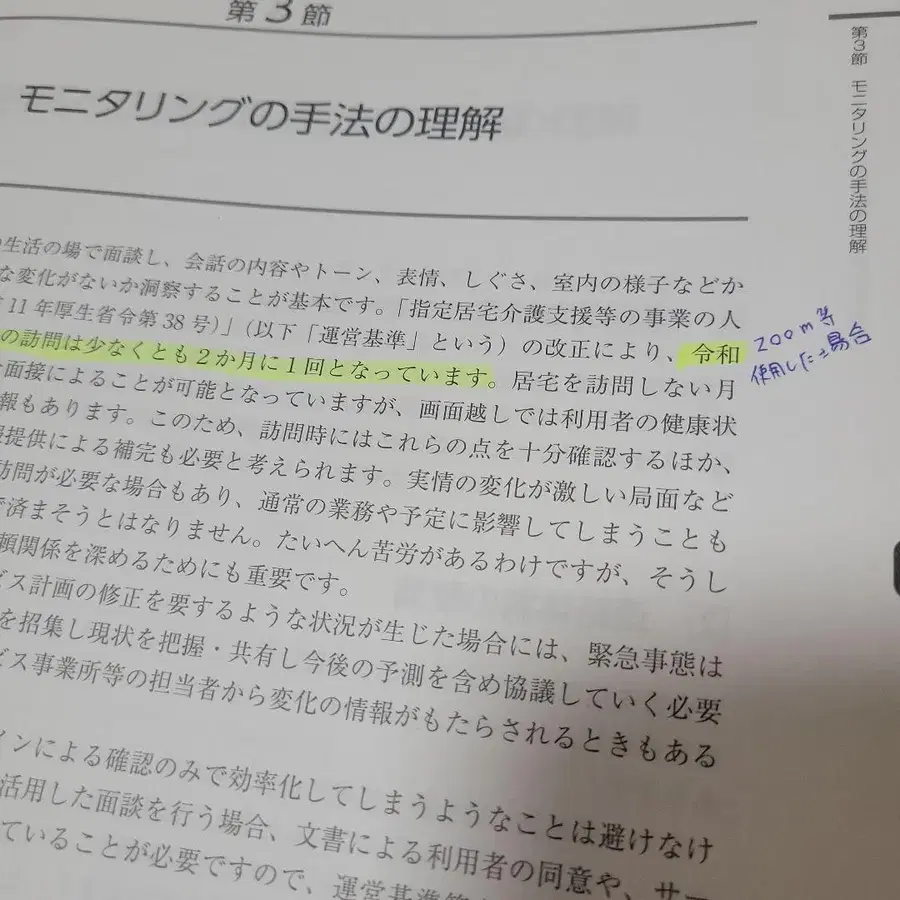 第3節
モニタリングの手法の理解
生活の場で面談し、会話の内容やトーン、表情、しぐさ、室内の様子などか
な変化がないか洞察することが基本です。「指定居宅介護支援等の事業の人
11年厚生省令第38号)」(以下「運営基準」という)の改正により、令和
の訪問は少なくとも2か月に1回となっています。居宅を訪問しない月
面接によることが可能となっていますが、画面越しでは利用者の健康状
報もあります。このため、訪問時にはこれらの点を十分確認するほか、
提供による補完も必要と考えられます。実情の変化が激しい局面など
訪問が必要な場合もあり、通常の業務や予定に影響してしまうことも
で済まそうとはなりません。たいへん苦労があるわけですが、そうし
頼関係を深めるためにも重要です。
ビス計画の修正を要するような状況が生じた場合には、緊急事態は
を招集し現状を把握・共有し今後の予測を含め協議していく必要
ビス事業所等の担当者から変化の情報がもたらされるときもある
インによる確認のみで効率化してしまうようなことは避けなけ
活用した面談を行う場合、文書による利用者の同意や、サー
ていることが必要ですので、運営基準等
ZOOm等
使用した場合
第3節 モニタリングの手法の理解